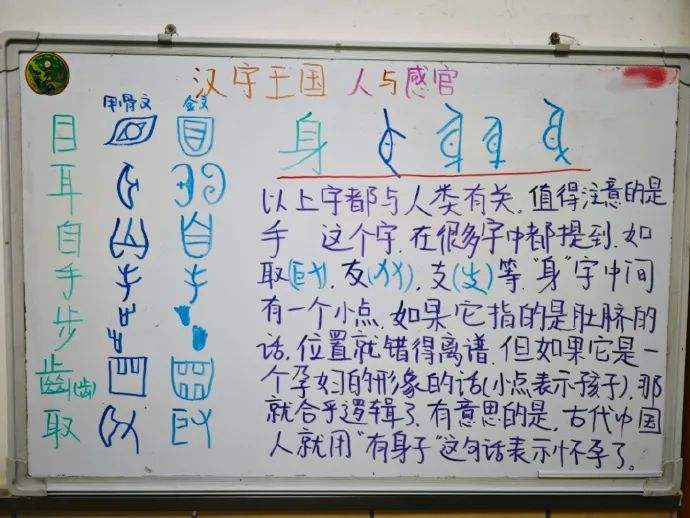 汉字王国 人与感官
甲骨文 金文
目
耳
自
手
步
齒(齿)
取
身
以上字都与人类有关。值得注意的是
手 这个字,在很多字中都提到,如
取( ),友( ),支( )等。“身”字中间
有一个小点,如果它指的是肚脐的
话,位置就错得离谱,但如果它是一
个孕妇的形象的话(小点表示孩子),那
就合乎逻辑了。有意思的是,古代中国
人就用“有身子”这句话表示怀孕了。